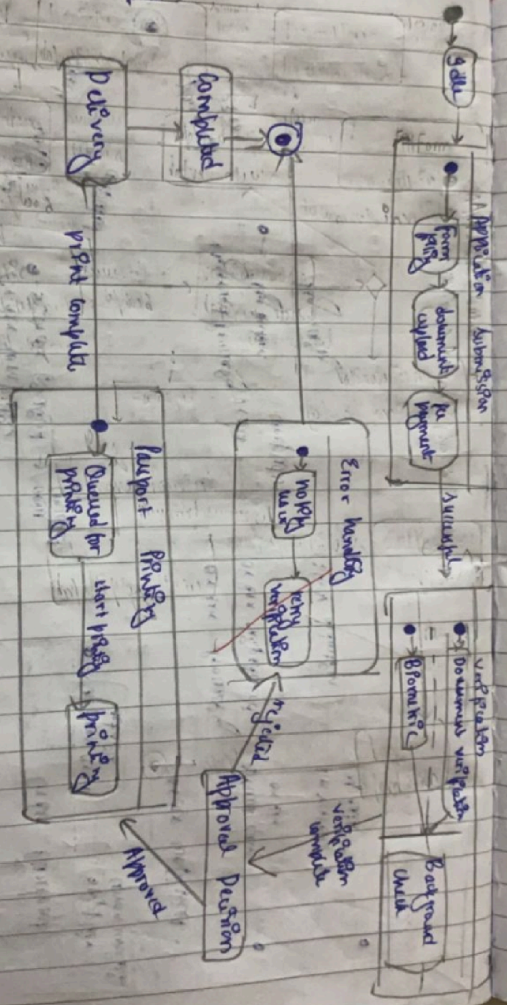 Idle
Application submission
form
filling
document
upload
fee
payment
successful
verification
Document verification
Biometric
Background
check
verification
complete
Approval Decision
rejected
Approved
Error handling
notify
user
retry
verification
Passport Printing
Queued for
printing
start printing
printing
print complete
Delivery
Completed